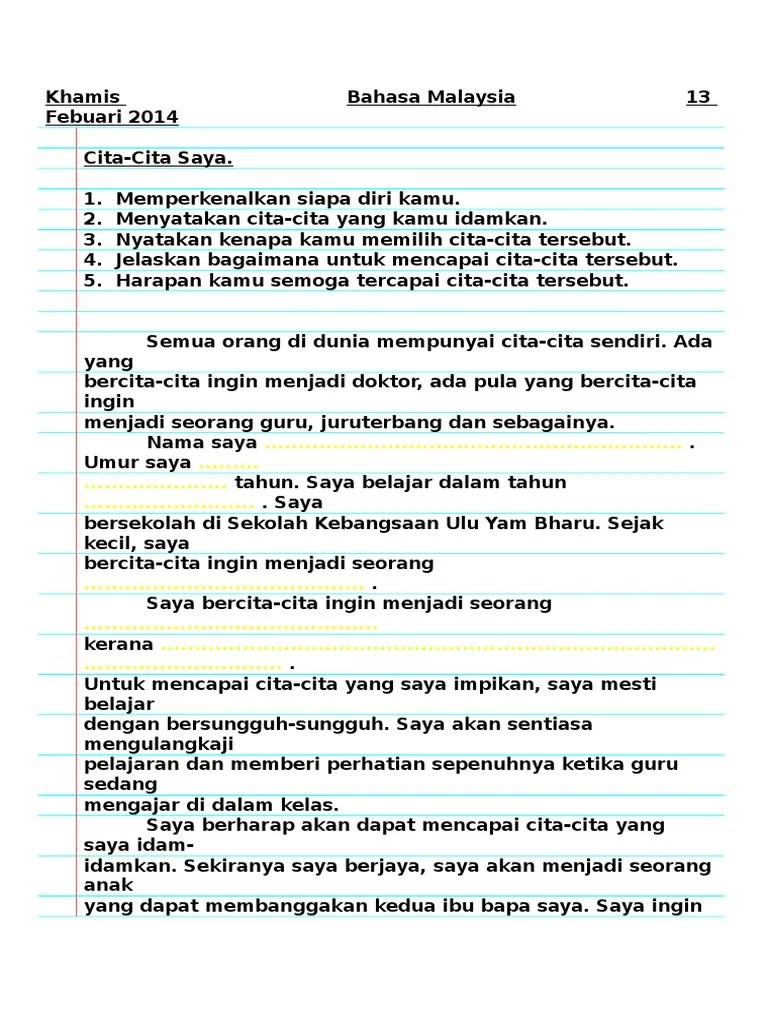 Khamis Bahasa Malaysia 13
Febuari 2014
Cita-Cita Saya.
1. Memperkenalkan siapa diri kamu.
2. Menyatakan cita-cita yang kamu idamkan.
3. Nyatakan kenapa kamu memilih cita-cita tersebut.
4. Jelaskan bagaimana untuk mencapai cita-cita tersebut.
5. Harapan kamu semoga tercapai cita-cita tersebut.
Semua orang di dunia mempunyai cita-cita sendiri. Ada
yang
bercita-cita ingin menjadi doktor, ada pula yang bercita-cita
ingin
menjadi seorang guru, juruterbang dan sebagainya.
Nama saya ............................................................. .
Umur saya .........
..................... tahun. Saya belajar dalam tahun
......................... . Saya
bersekolah di Sekolah Kebangsaan Ulu Yam Bharu. Sejak
kecil, saya
bercita-cita ingin menjadi seorang
......................................... .
Saya bercita-cita ingin menjadi seorang
...........................................
kerana .................................................................................
............................. .
Untuk mencapai cita-cita yang saya impikan, saya mesti
belajar
dengan bersungguh-sungguh. Saya akan sentiasa
mengulangkaji
pelajaran dan memberi perhatian sepenuhnya ketika guru
sedang
mengajar di dalam kelas.
Saya berharap akan dapat mencapai cita-cita yang
saya idam-
idamkan. Sekiranya saya berjaya, saya akan menjadi seorang
anak
yang dapat membanggakan kedua ibu bapa saya. Saya ingin